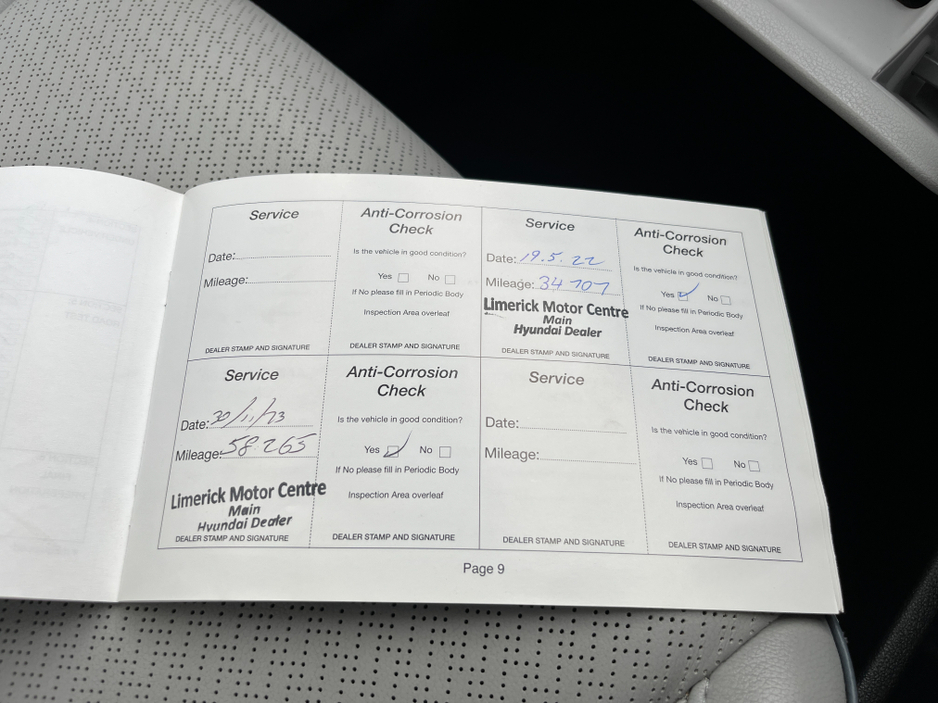 Service
Date:
Mileage:
DEALER STAMP AND SIGNATURE
Anti-Corrosion
Check
Is the vehicle in good condition?
Yes No
If No please fill in Periodic Body
Inspection Area overleaf
DEALER STAMP AND SIGNATURE
Service
Date: 19.5.22
Mileage: 34 707
Limerick Motor Centre
Main
Hyundai Dealer
DEALER STAMP AND SIGNATURE
Anti-Corrosion
Check
Is the vehicle in good condition?
Yes No
If No please fill in Periodic Body
Inspection Area overleaf
DEALER STAMP AND SIGNATURE
Service
Date: 30/11/23
Mileage: 58.265
Limerick Motor Centre
Main
Hyundai Dealer
DEALER STAMP AND SIGNATURE
Anti-Corrosion
Check
Is the vehicle in good condition?
Yes No
If No please fill in Periodic Body
Inspection Area overleaf
DEALER STAMP AND SIGNATURE
Service
Date:
Mileage:
DEALER STAMP AND SIGNATURE
Anti-Corrosion
Check
Is the vehicle in good condition?
Yes No
If No please fill in Periodic Body
Inspection Area overleaf
DEALER STAMP AND SIGNATURE
Page 9